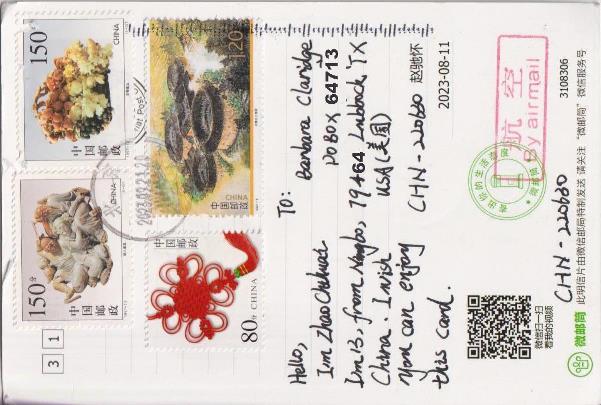 150分
CHINA
中国邮政
120分
CHINA
中国邮政
150分
CHINA
中国邮政
80分 CHINA
中国邮政
3 1
Hello,
I'm Zhao Chihuai
I'm 13, from Ningbo,
China. I wish
you can enjoy
this card.
To: Barbara Claridge
PO BOX 64713
79464 Lubbock TX
USA (美国)
CHN-220680 赵驰怀
2023-08-11
航空
By airmail
CHN-220680
微信扫一扫
看我的视频
微邮筒
此明信片由微信邮局特制发送 请关注“微邮筒”微信服务号
3108306